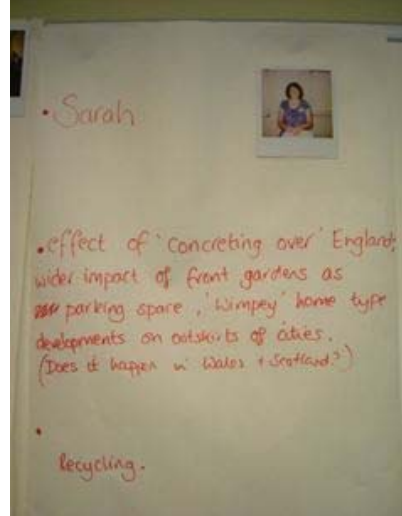 • Sarah
• effect of 'concreting over' England;
wider impact of front gardens as
parking space, 'Wimpey' home type
developments on outskirts of cities.
(Does it happen in Wales + Scotland?)
•
Recycling.